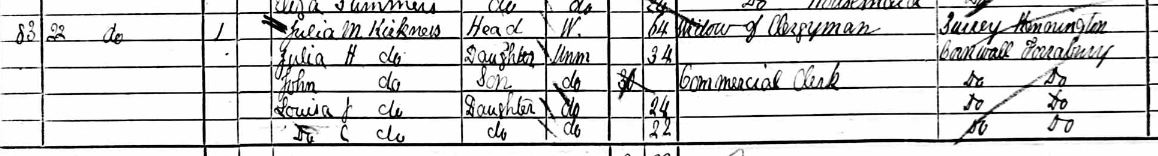 Eliza Summers do do 24 Do Housemaid
83 22 do 1 Julia M Kirkness Head W. 64 Widow of Clergyman Surrey Kennington
Julia H do Daughter Unm 34 Cornwall Forrabury
John do Son do 30 Commercial Clerk Do Do
Louisa J do Daughter do 24 Do Do
Do C do do do 22 Do Do